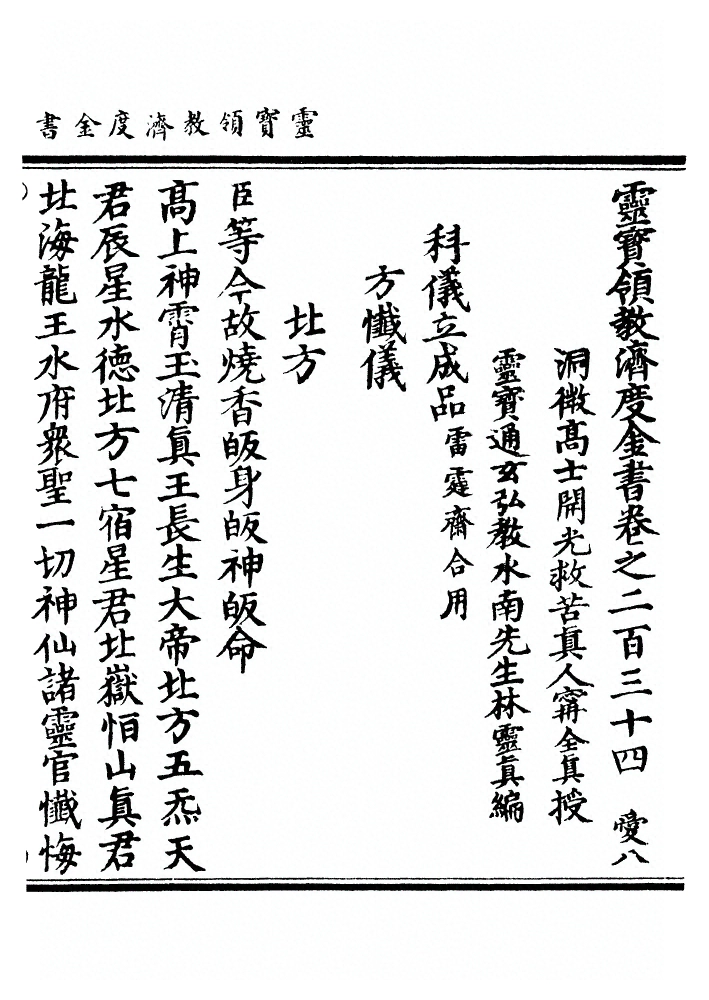 靈寳領教濟度金書
靈寳領教濟度金書卷之二百三十四 愛八
洞微高士開光救苦眞人寗全眞授
靈寳通玄弘教水南先生林靈眞編
科儀立成品雷霆齋合用
方懺儀
北方
臣等今故燒香皈身皈神皈命
高上神霄玉清眞王長生大帝北方五炁天
君辰星水德北方七宿星君北嶽恒山眞君
北海龍王水府衆聖一切神仙諸靈官懺悔